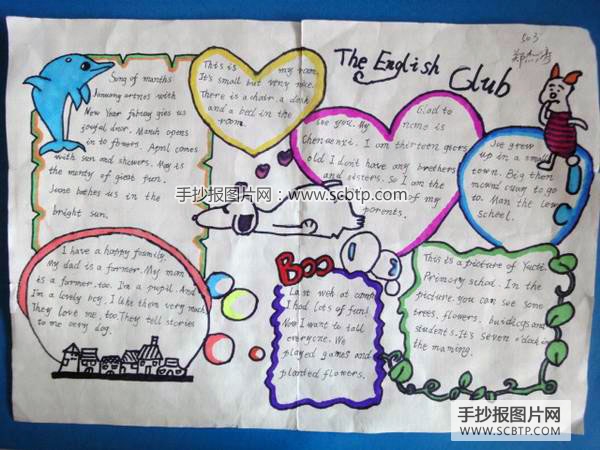 The English Club
503
Song of months
January artnes with
New Year febray gies us
joyful door. March opens
in to flowers. April comes
with sun and showers. May is
the manty of giost fun.
Jone bathes us in the
bright sun.
This is my room,
It's small but very nice.
There is a chair. a desk
and a bed in the
room.
Glad to
love you. My name is
Chenwenxi. I am thirteen years
old I don't have any brothers
and sisters. So I am the
of my
parents.
Ive grew
up in a small
town. Big then
moved cuan to go
to. Man the low
scheel.
手抄报图片网:www.scbtp.com
I have a happy famiily,
My dad is a former. My mom
is a former. too. I'm a pupil. And
I'm a lovely bcy, I like them very much
They love me, too. They tell stories
to me very day.
Boo
Last weh at comp
I had lots of fun!
Now I want to talk
everyone. We
played games and
planted flowers.
This is a picture of Yucti
Primory schod. In the
picture you can see some
trees, flowers, busidiqgs and
students. It's seven o'clock in
the maming.
手抄报图片网
WWW.SCBTP.COM